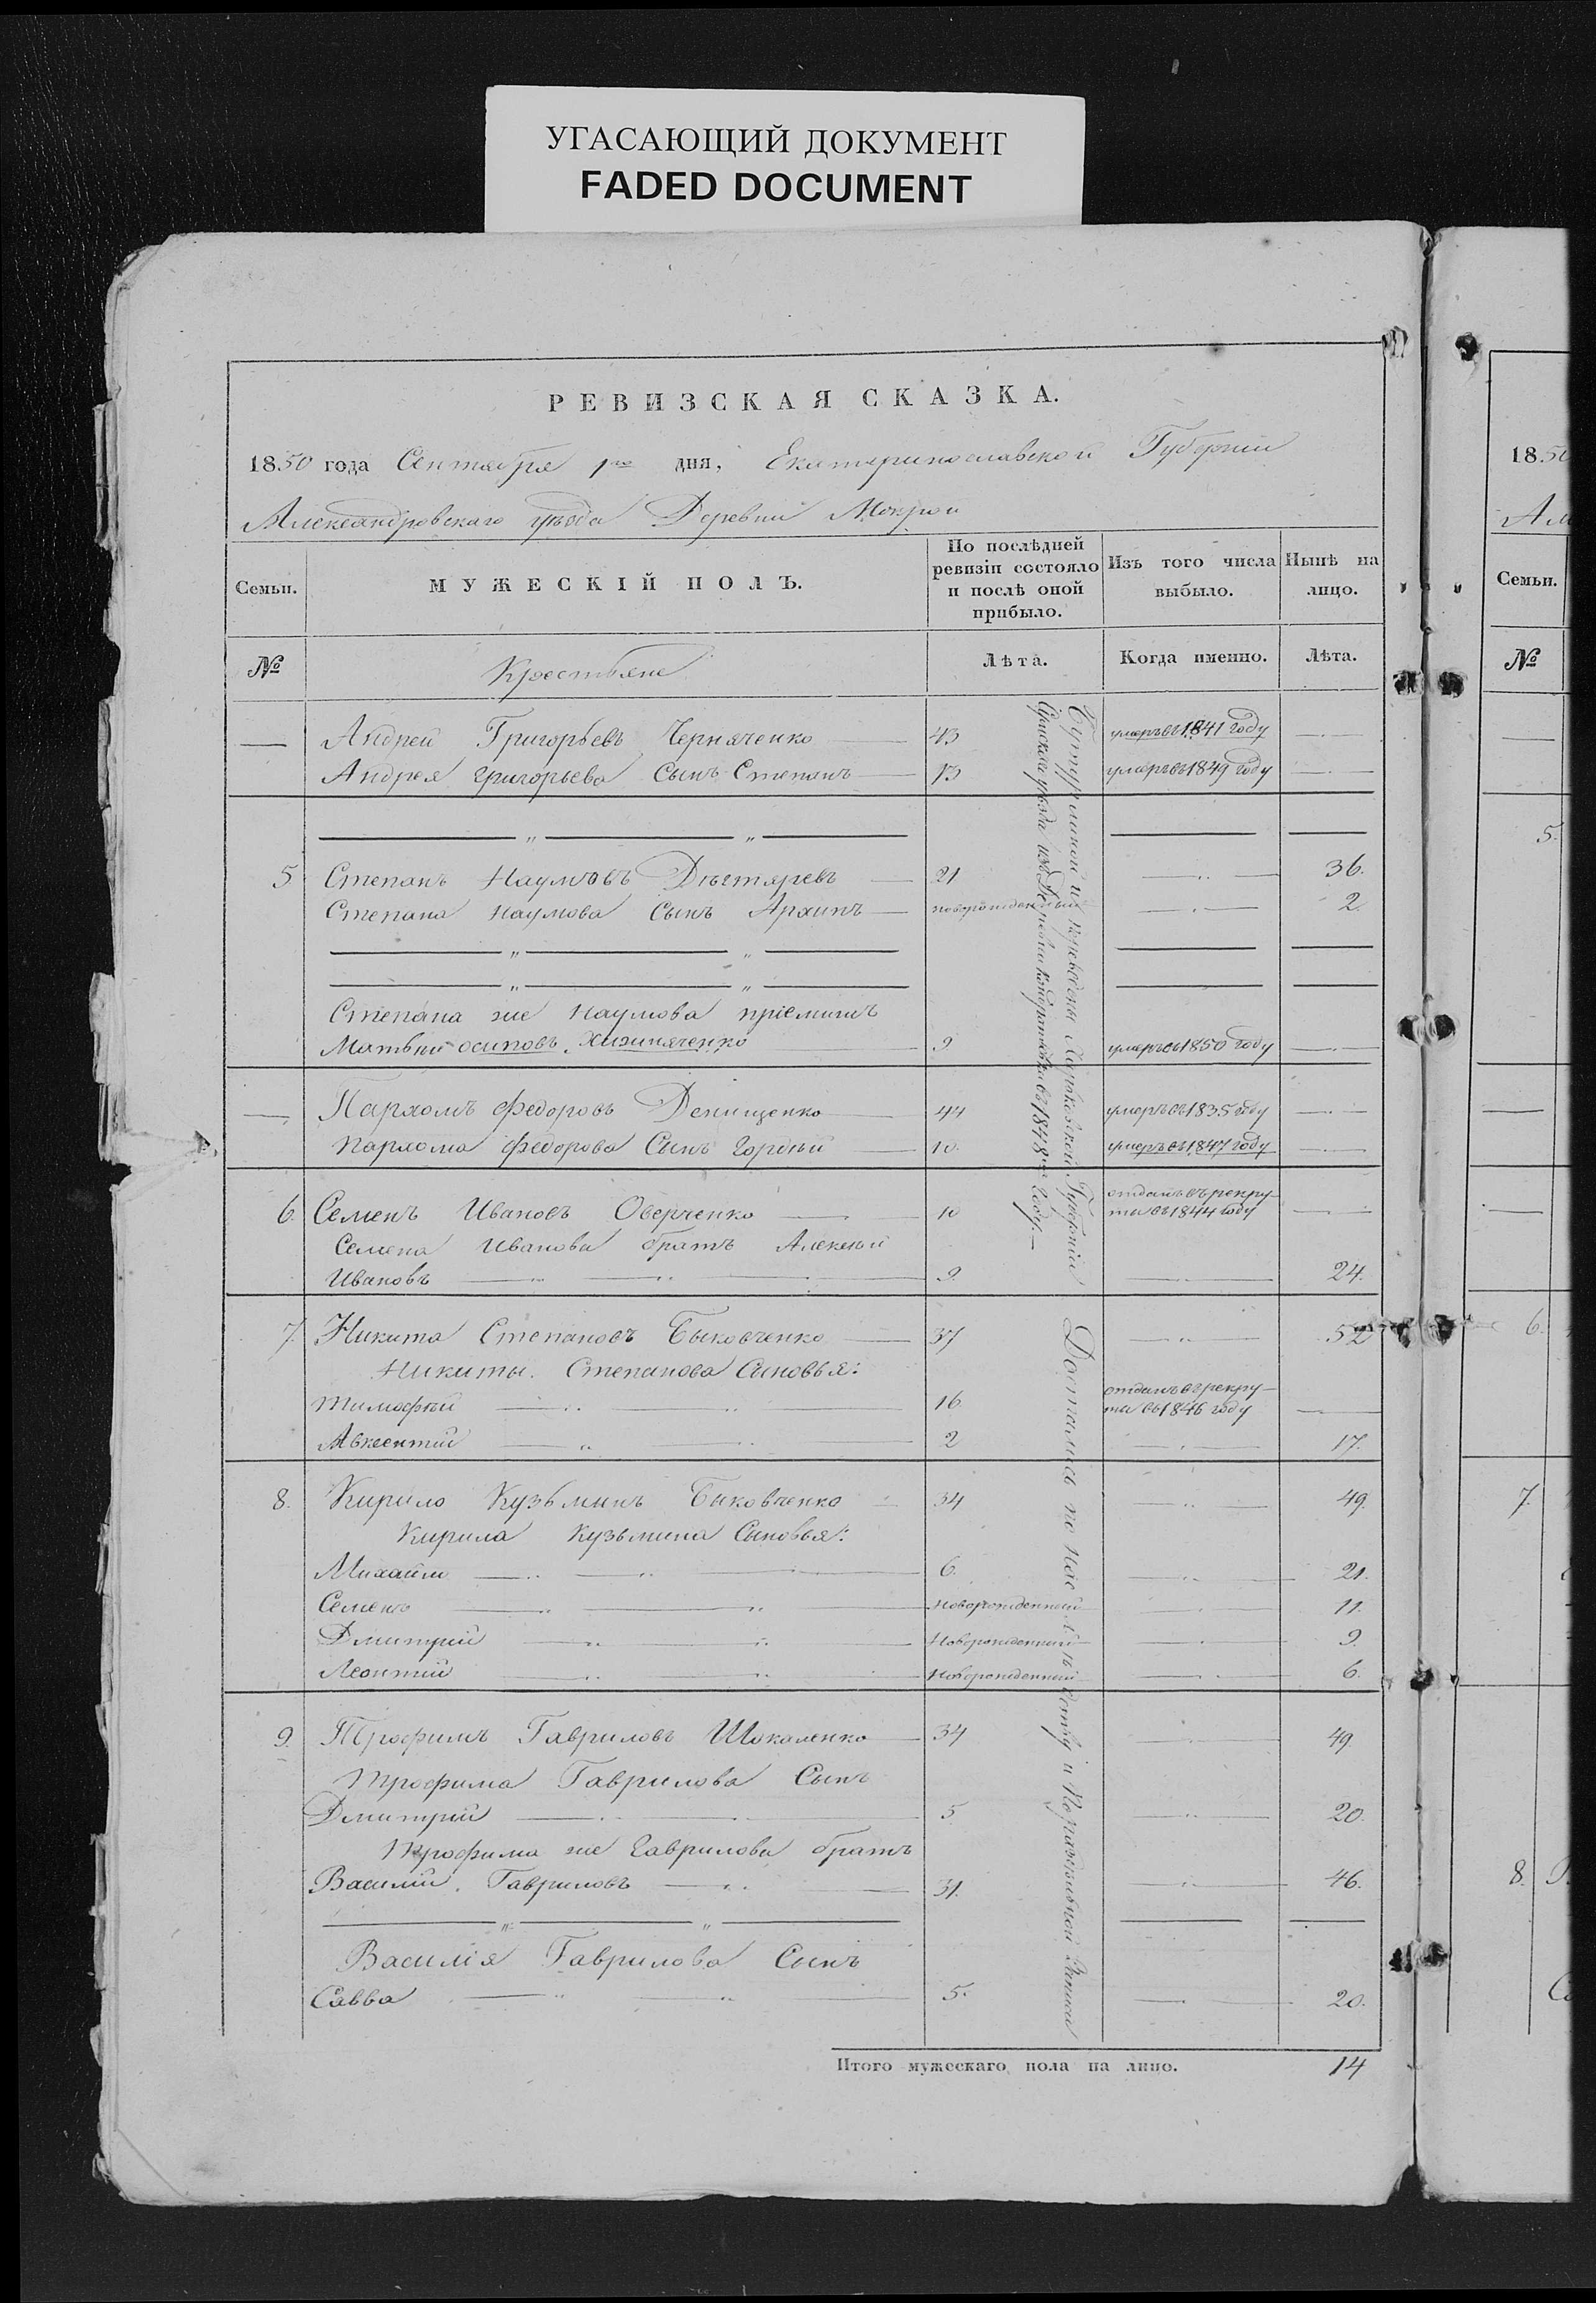 УГАСАЮЩИЙ ДОКУМЕНТ
FADED DOCUMENT
РЕВИЗСКАЯ СКАЗКА.
1850 года Сентября 1го дня, Екатеринославской Губернии
Александровскаго уѣзда Деревни Мокрой
Семьи.
МУЖЕСКІЙ ПОЛЪ.
По послѣдней ревизіи состояло и послѣ оной прибыло.
Изъ того числа выбыло.
Нынѣ на лицо.
№ Крестьяне Лѣта. Когда именно. Лѣта.
Андрей Григорьевъ Черняченко 43 умеръ въ 1841 году
Андрея Григорьева Сынъ Степанъ 13 умеръ въ 1849 году
5 Степанъ Наумовъ Дѣгтяревъ 21 36.
Степана Наумова Сынъ Архипъ новорожденный 2.
Степана же Наумова пріемышъ
Матвѣй Осиповъ 9 умеръ въ 1850 году
Пархомъ Федоровъ Денищенко 44 умеръ въ 1835 году
Пархома Федорова Сынъ Гордѣй 10. умеръ въ 1847 году
6. Семенъ Ивановъ Оверченко 10 отданъ въ рекру-
ты въ 1844 году
Семена Иванова братъ Алексѣй
Ивановъ 9. 24.
7. Никита Степановъ Быковченко 37 52
Никиты Степанова Сыновья:
Тимофѣй 16 отданъ въ рекру-
ты въ 1846 году
Авксентій 2 17.
8. Кирило Кузьминъ Быковченко 34 49.
Кирила Кузьмина Сыновья:
Михайло 6. 21.
Семенъ Новорожденный 11.
Дмитрій Новорожденный 9.
Леонтій Новорожденный 6.
9. Трофимъ Гавриловъ Шокаленко 34 49.
Трофима Гаврилова Сынъ
Дмитрій 5 20.
Трофима же Гаврилова братъ
Василій Гавриловъ 31. 46.
Василія Гаврилова Сынъ
Савва 5. 20.
переведены Харьковской Губерніи
уѣзда изъ Деревни въ 1848м году
Достались по наслѣдству и
Итого мужескаго пола на лицо. 14
18.50
Семьи.
№
5.
6.
7.
8.